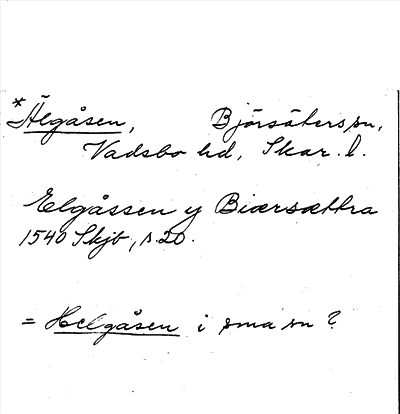 *Älgåsen, Björsäters sn,
Vadsbo hd, Skar. l.
Elgåssen y Biærsættra
1540 Skjb, s. 20.
= Helgåsen i sma sn?